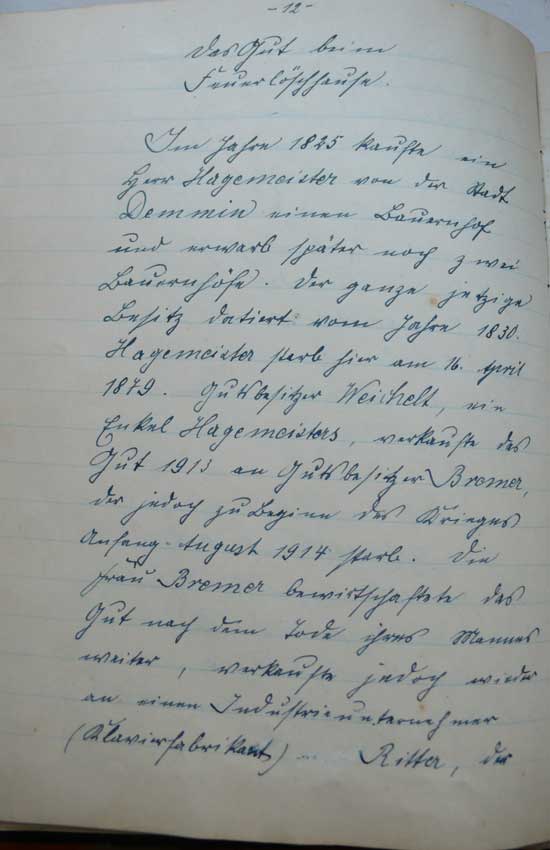 - 12 -
Das Gut beim
Feuerlöschhause.
Im Jahre 1825 kaufte ein
Herr Hagemeister von der Stadt
Demmin einen Bauernhof
und erwarb später noch zwei
Bauernhöfe. Der ganze jetzige
Besitz datiert vom Jahre 1830.
Hagemeister starb hier am 16. April
1879. Gutsbesitzer Weichelt, ein
Enkel Hagemeisters, verkaufte das
Gut 1913 an Gutsbesitzer Bremer,
der jedoch zu Beginn des Krieges
Anfang August 1914 starb. Die
Frau Bremer bewirtschaftete das
Gut nach dem Tode ihres Mannes
weiter, verkaufte jedoch wieder
an einen Industrieunternehmer
(Klavierfabrikant) Ritter, der